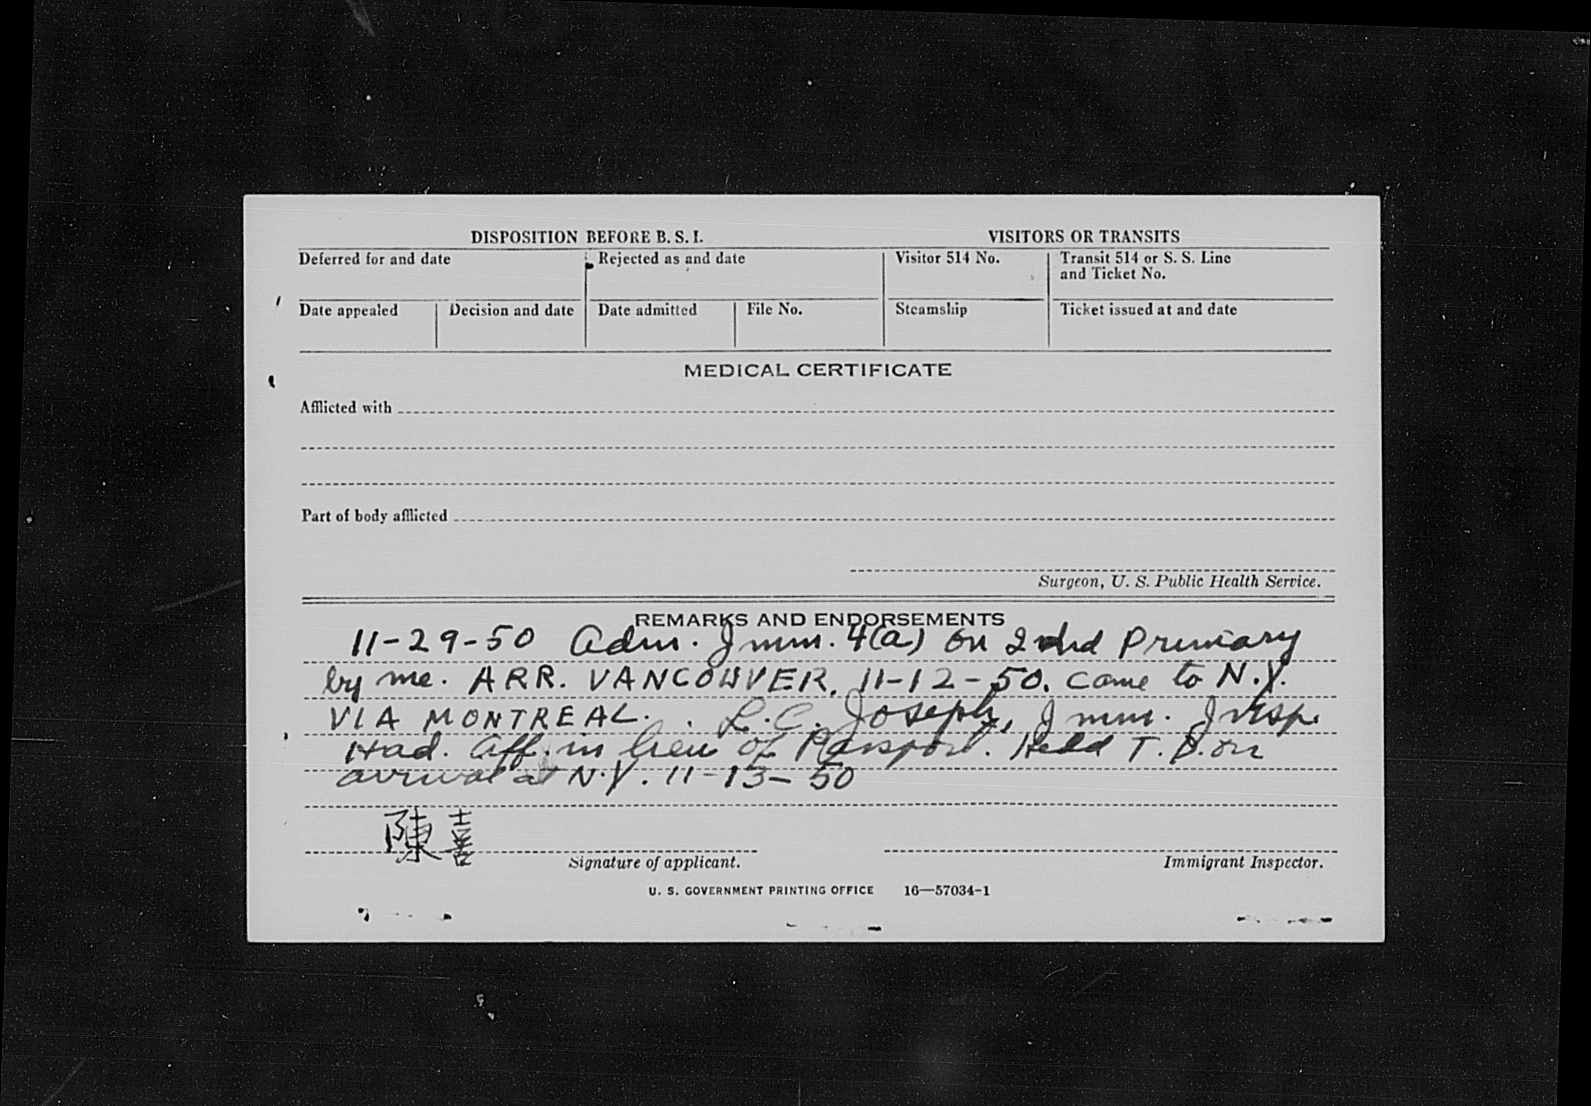 DISPOSITION BEFORE B. S. I.
VISITORS OR TRANSITS
Deferred for and date
Rejected as and date
Visitor 514 No.
Transit 514 or S. S. Line
and Ticket No.
Date appealed
Decision and date
Date admitted
File No.
Steamship
Ticket issued at and date
MEDICAL CERTIFICATE
Afflicted with
Part of body afflicted
Surgeon, U. S. Public Health Service.
REMARKS AND ENDORSEMENTS
11-29-50 Adm. Imm. 4(a) on 2nd Primary
by me. ARR. VANCOUVER, 11-12-50. Came to N.Y.
VIA MONTREAL. L.C. Joseph, Imm. Insp.
Had. Aff. in lieu of Passport. Held T.D. on
arrival at N.Y. 11-13-50
陳喜
Signature of applicant.
Immigrant Inspector.
U. S. GOVERNMENT PRINTING OFFICE 16—57034-1